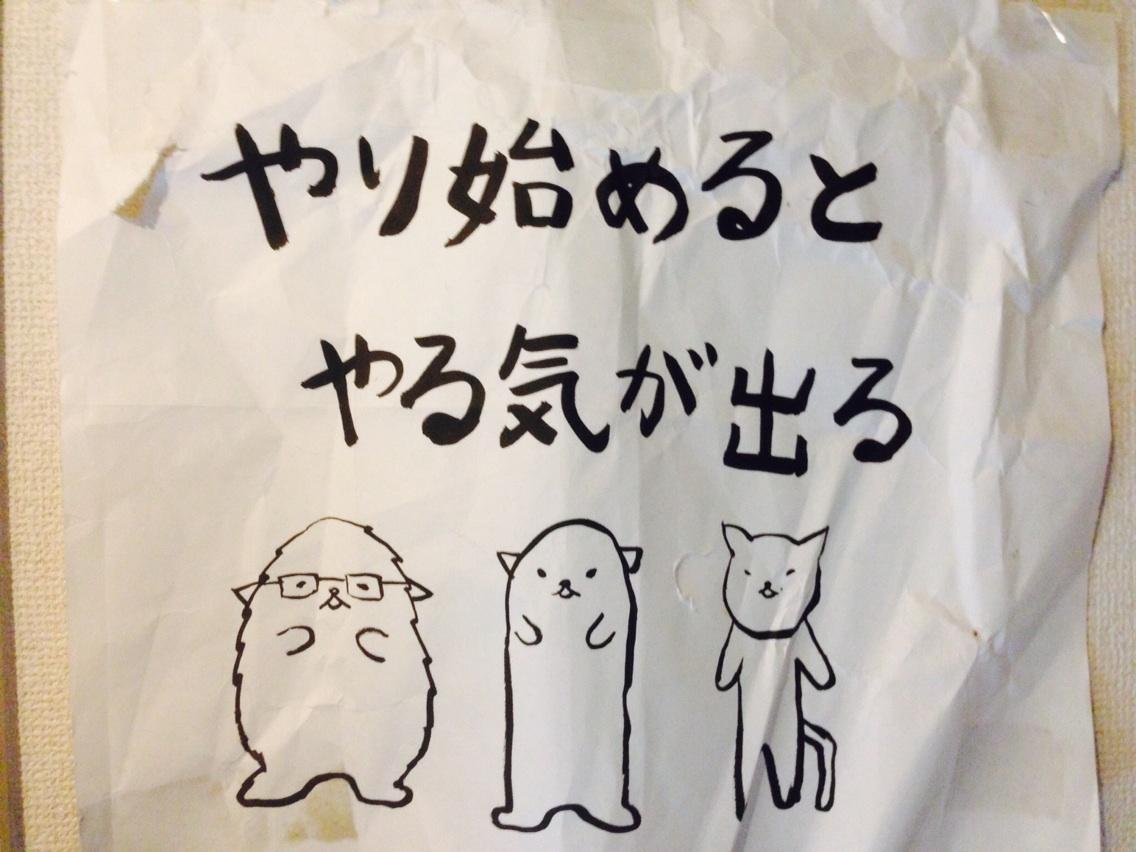 やり始めると
やる気が出る